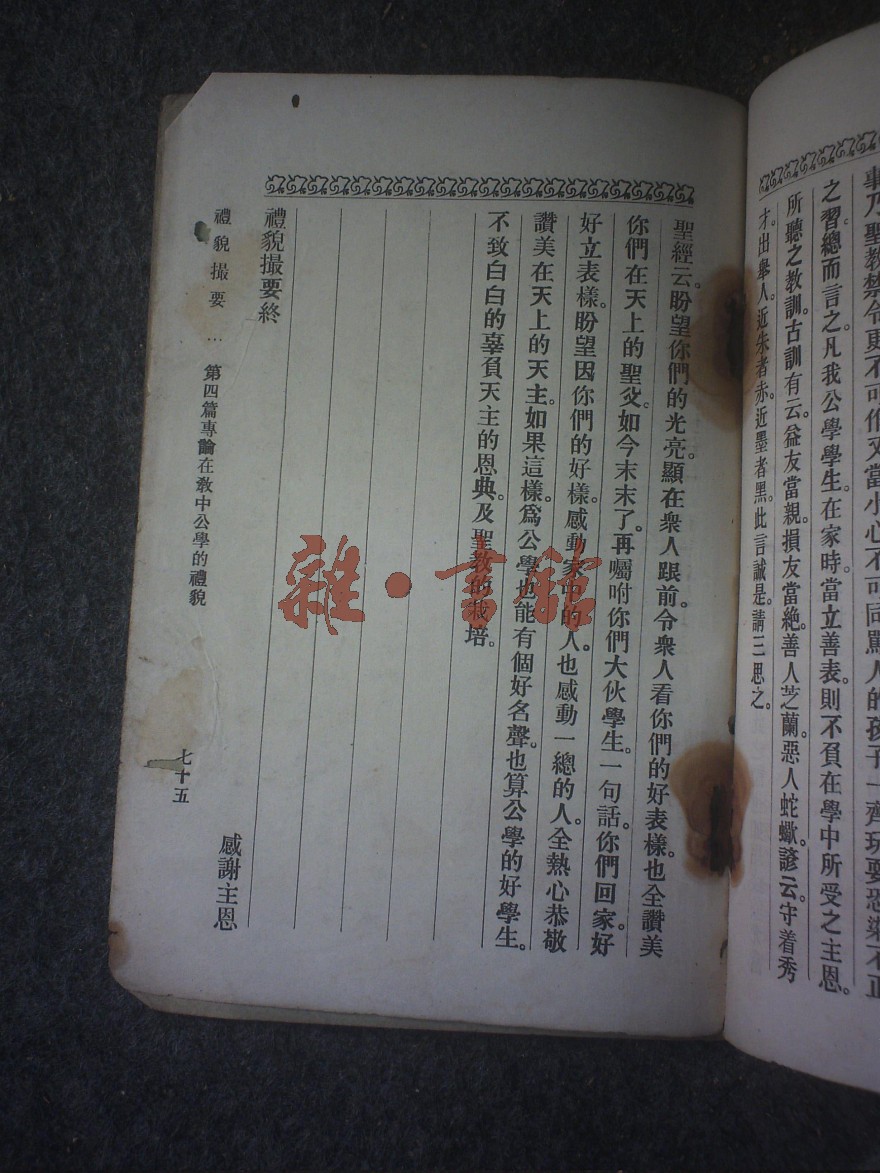 事乃聖教禁令更不可作又當小心不可同罵人的孩子一齊玩耍恐染不正
之習。總而言之。凡我公學學生。在家時。當立善表。則不負在學中所受之主恩。
所聽之教訓。古訓有云。益友當親。損友當絶。善人芝蘭。惡人蛇蠍。諺云。守着秀
才出舉人。近朱者赤。近墨者黑。此言誠是。請三思之。
聖經云。盼望你們的光亮。顯在衆人跟前。令衆人看你們的好表樣。也全讚美
你們在天上的聖父。如今末末了。再囑咐你們大伙學生。一句話。你們回家好
好立表樣。盼望因你們的好樣。感動家中的人。也感動一總的人。全熱心恭敬
讚美在天上的天主。如果這樣。爲公學也能有個好名聲。也算公學的好學生。
不致白白的辜負天主的恩典。及聖教的栽培。
禮貌撮要終
感謝主恩
禮貌撮要 … 第四篇專論在教中公學的禮貌 七十五
雜·書館